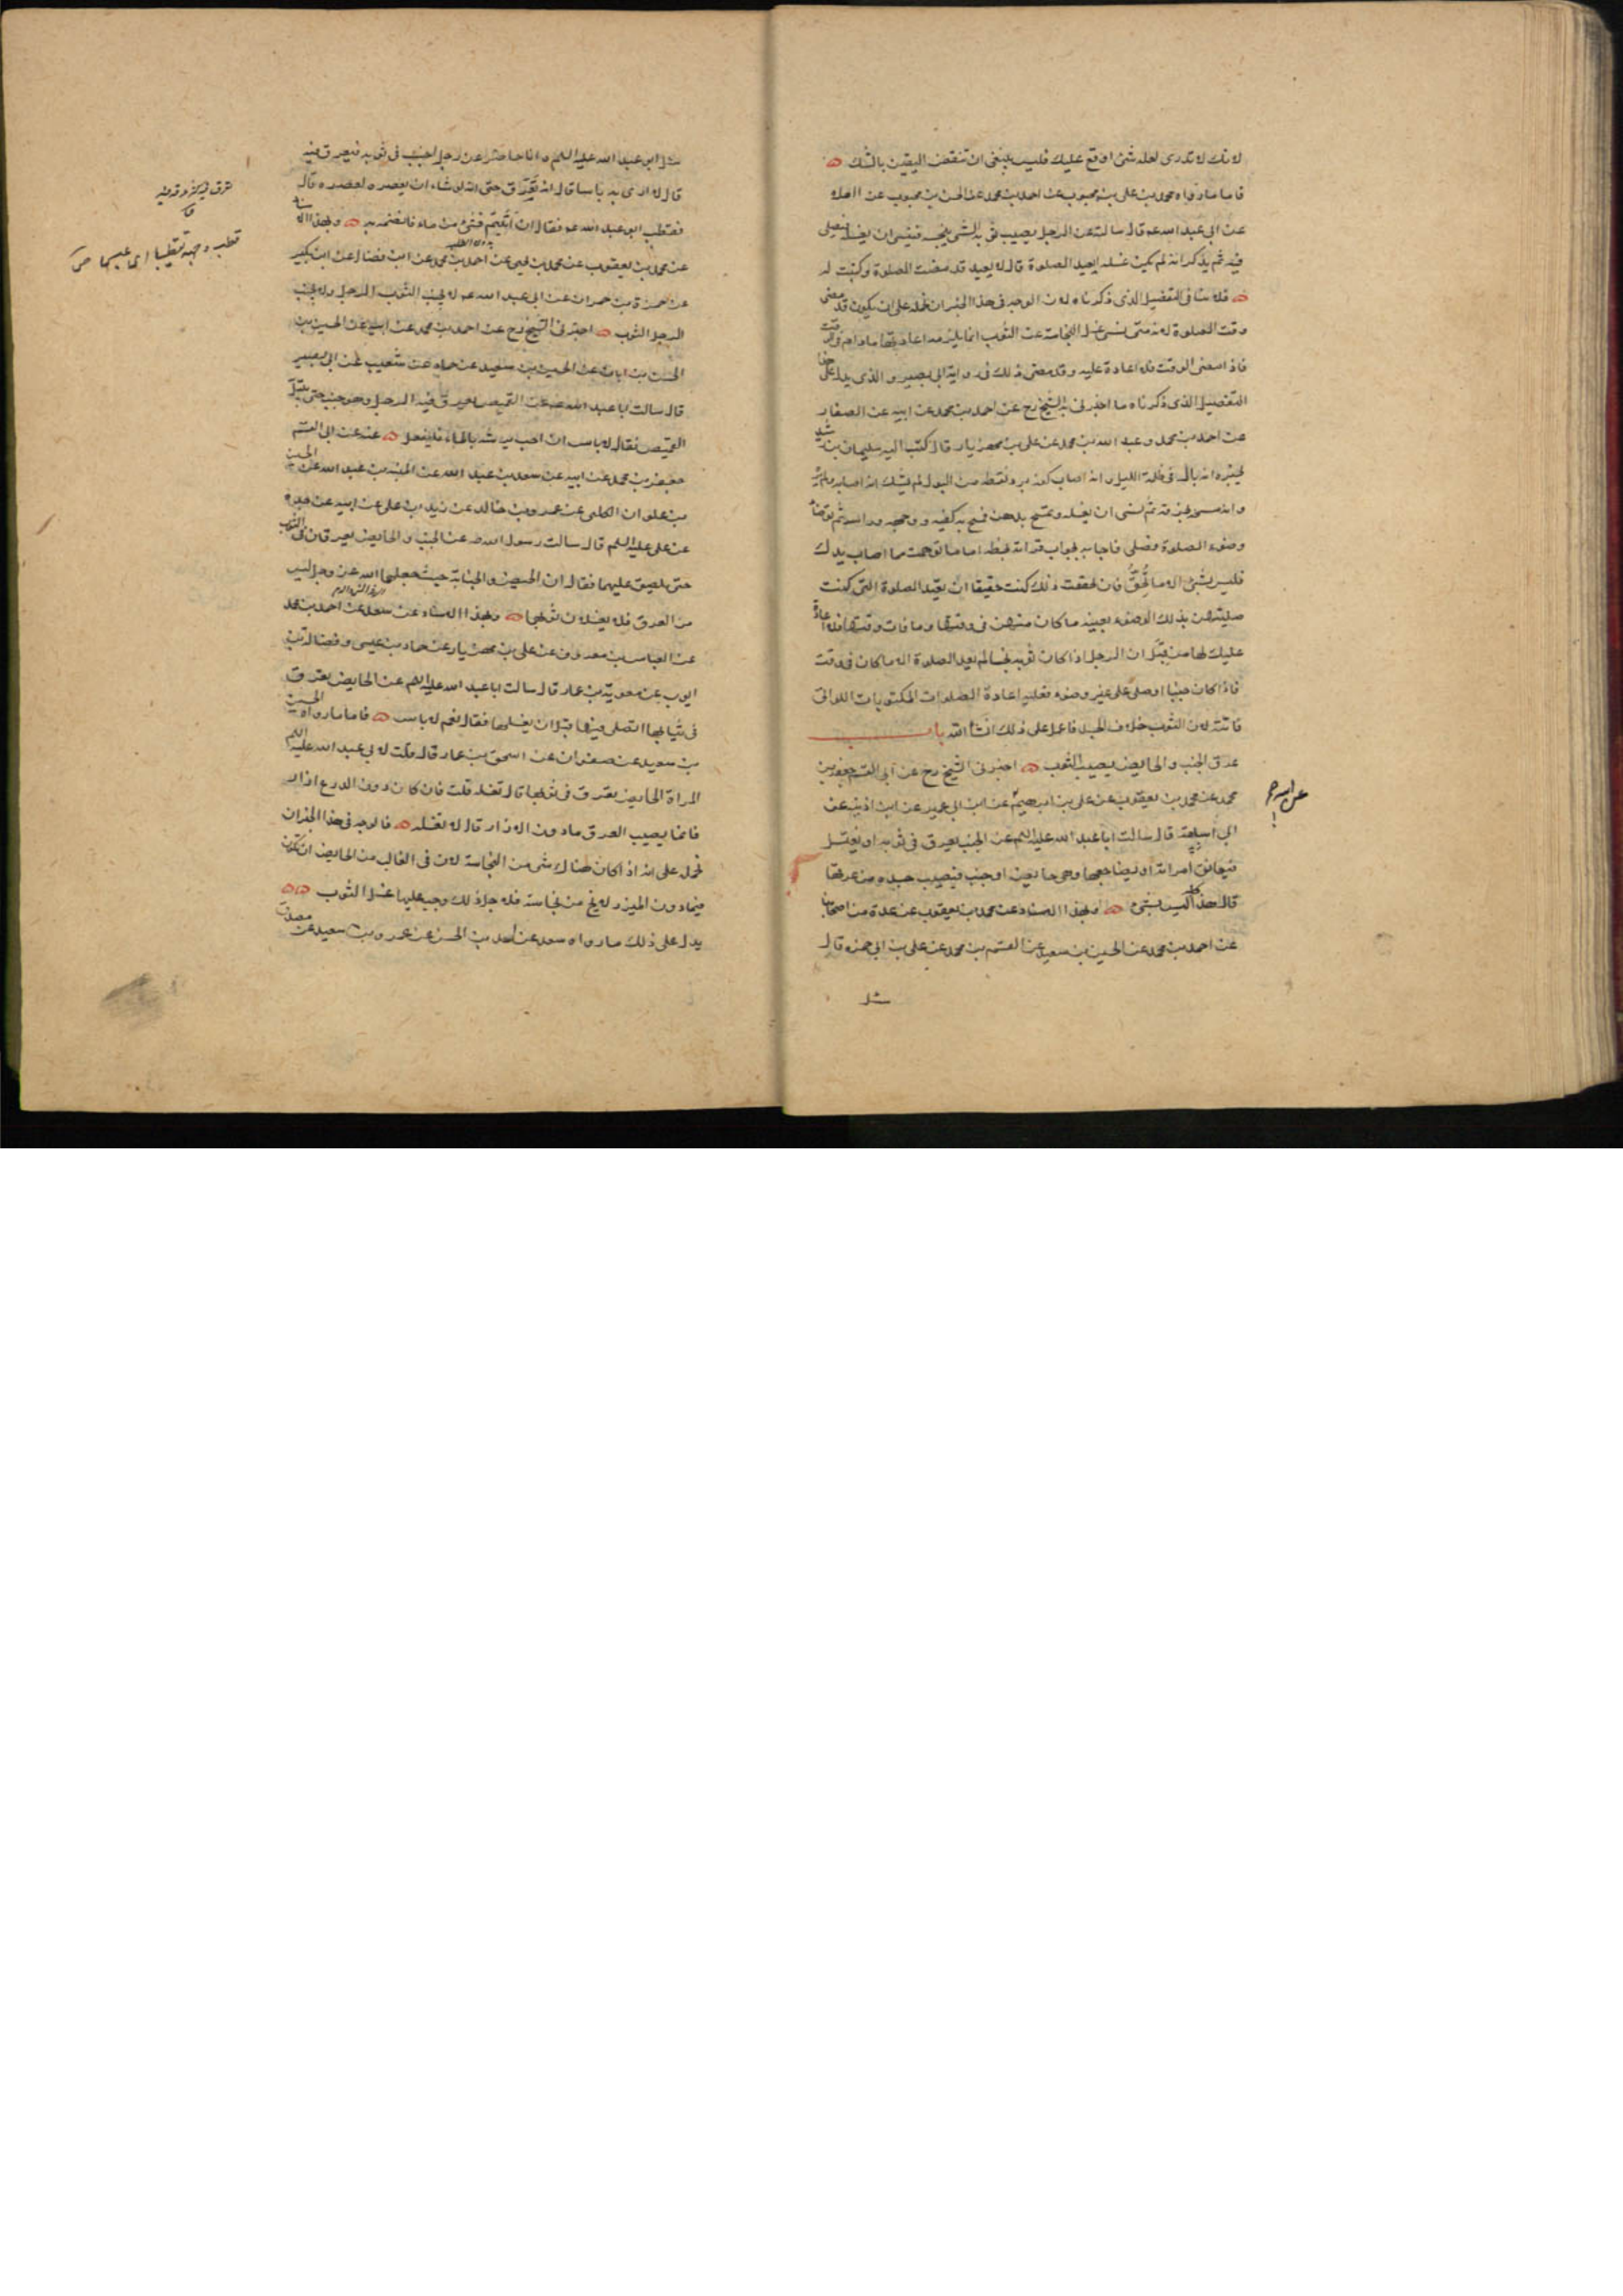 لانك لا تدرى لعله شئ اوقع عليك فليس ينبغى ان تنقض اليقين بالشك
فاما ما رواه محمد بن على بن محبوب عن احمد بن محمد عن الحسن بن محبوب عن العلا
عن ابى عبد الله عم قال سالته عن الرجل يصيب ثوبه الشئ ينجسه فينسى ان يغسله فيصلى
فيه ثم يذكر انه لم يكن غسله ايعيد الصلوة قال لا يعيد قد مضت الصلوة وكتبت له
فلا ينافى التفصيل الذى ذكرناه لان الوجه فى هذا الخبر ان نحمله على ان يكون قد مضى
وقت الصلوة لانه متى نسى غسل النجاسة عن الثوب انما يلزمه اعادتها ما دام فى الوقت
فاذا مضى الوقت فلا اعادة عليه وقد مضى ذلك فى رواية ابى بصير والذى يدل على هذا
التفصيل الذى ذكرناه ما اخبرنى به الشيخ رح عن احمد بن محمد عن ابيه عن الصفار
عن احمد بن محمد وعبد الله بن محمد عن على بن مهزيار قال كتب اليه سليمان بن رشيد
يخبره انه بال فى ظلمة الليل وانه اصاب كفه برد نقطة من البول لم يشك انه اصابه ولم يره
وانه مسحه بخرقة ثم نسى ان يغسله وتمسح بدهن فمسح به كفيه ووجهه وراسه ثم توضا
وضوء الصلوة فصلى فاجابه بجواب قراته بخطه اما ما توهمت مما اصاب يدك
فليس بشئ الا ما تحقق فان تحققت ذلك كنت حقيقا ان تعيد الصلوة التى كنت
صليتهن بذلك الوضوء بعينه ما كان منهن فى وقتها وما فات وقتها فلا اعادة
عليك لها من قبل ان الرجل اذا كان ثوبه نجسا لم يعد الصلوة الا ما كان فى وقت
فاذا كان جنبا او صلى على غير وضوء فعليه اعادة الصلوات المكتوبات اللواتى
فاتته لان الثوب خلاف الجسد فاعمل على ذلك انشأ الله باب
عرق الجنب والحايض يصيب الثوب اخبرنى الشيخ رح عن ابى القسم جعفر بن
محمد عن محمد بن يعقوب عن على بن ابرهيم عن ابن ابى عمير عن ابن اذينه عن
عن ابيه
ابى اسامة قال سالت ابا عبد الله عليه السلم عن الجنب يعرق فى ثوبه او يغتسل
فيعانق امراته او يضاجعها وهى حايض او جنب فيصيب جسده من عرقها
قال هذا كله ليس بشئ وبهذا الاسناد عن محمد بن يعقوب عن عدة من اصحابنا
عن احمد بن محمد عن الحسين بن سعيد عن القسم بن محمد عن على بن ابى حمزه قال
سئل
سئل ابو عبد الله عليه السلم وانا حاضر عن رجل اجنب فى ثوبه فيعرق فيه
قال لا ارى به باسا قال انه يعرق حتى انه لو شاء ان يعصره لعصره قال
فقطب ابو عبد الله عم فقال ان ابيتم فشئ من ماء فانضحه به وبهذا الاسناد
قطب وجهه تقطيبا اى عبسها ص
عن محمد بن يعقوب عن محمد بن يحيى عن احمد بن محمد عن ابن فضال عن ابن بكير
عن حمزة بن حمران عن ابى عبد الله عم لا يجنب الثوب الرجل ولا يجنب
الرجل الثوب اخبرنى الشيخ رح عن احمد بن محمد عن ابيه عن الحسين بن
الحسن بن ابان عن الحسين بن سعيد عن حماد عن شعيب عن ابى بصير
قال سالت ابا عبد الله عم عن القميص يعرق فيه الرجل وهو جنب حتى يبتل
القميص فقال لا باس ان احب ان يرشه بالماء فليفعل عنه عن ابى القسم
جعفر بن محمد عن ابيه عن سعد بن عبد الله عن المنبه بن عبد الله عن الحسين
بن علوان الكلبى عن عمرو بن خالد عن زيد بن على عن ابيه عن جده
عن على عليه السلم قال سالت رسول الله ص عن الجنب والحايض يعرقان فى الثوب
حتى يلصق عليهما فقال ان الحيض والجنابة حيث جعلهما الله عز وجل ليس
من العرق فلا يغسلان ثوبهما وبهذا الاسناد عن سعد عن احمد بن محمد
عن العباس بن معروف عن على بن مهزيار عن حماد بن عيسى وفضالة بن
ايوب عن معوية بن عمار قال سالت ابا عبد الله عليه السلم عن الحايض تعرق
فى ثيابها اتصلى فيها قبل ان يغسلها فقال نعم لا باس فاما ما رواه الحسين
بن سعيد عن صفوان عن اسحق بن عمار قال قلت لابى عبد الله عليه السلم
المراة الحايض تعرق فى ثوبها قال تغسله قلت فان كان دون الدرع ازار
فانما يصيب العرق ما دون الازار قال لا تغسله فالوجه فى هذا الخبر ان
نحمل على انه اذا كان هناك شئ من النجاسة لان فى الغالب من الحايض ان تكون
فيما دون الميزر لا يخ من نجاسة فلاجل ذلك وجب عليها غسل الثوب
يدل على ذلك ما رواه سعد عن احمد بن الحسن عن عمرو بن سعيد عن مصدق